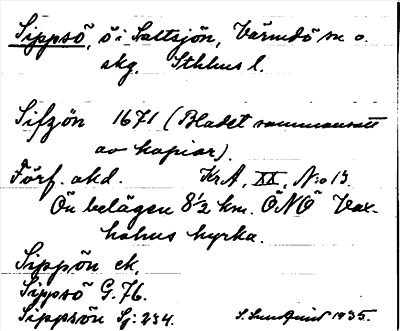 Sippsö, ö i Saltsjön, Värmdö sn o.
skg. Sthlms l.
Sifzön 1671 (Bladet sammansatt
av kopior).
Förf. akd. KrA, XX, N:o 13.
Ön belägen 8½ km. ÖNÖ Vax-
holms kyrka.
Sippön ek,
Sippsö G. 76.
Sippsön Sj: 234.
1935.